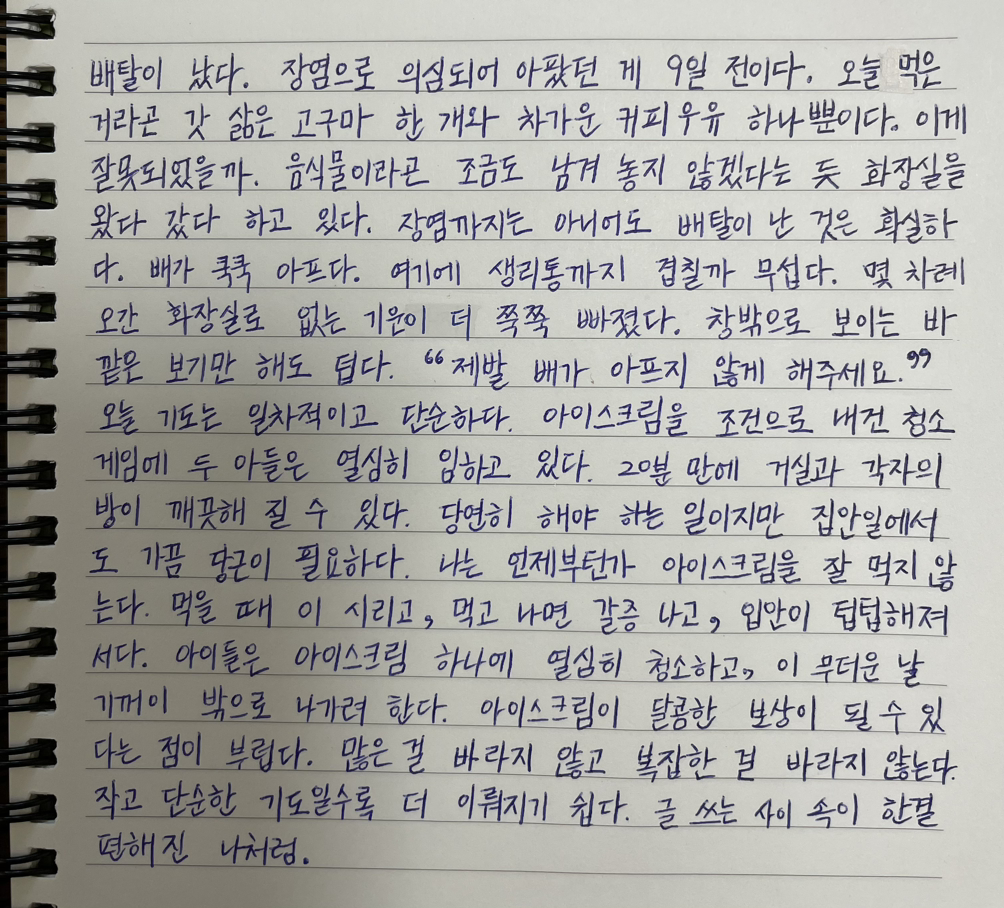 배탈이 났다. 장염으로 의심되어 아팠던 게 9일 전이다. 오늘 먹은
거라곤 갓 삶은 고구마 한 개와 차가운 커피우유 하나뿐이다. 이게
잘못되었을까. 음식물이라곤 조금도 남겨 놓지 않겠다는 듯 화장실을
왔다 갔다 하고 있다. 장염까지는 아니어도 배탈이 난 것은 확실하
다. 배가 쿡쿡 아프다. 여기에 생리통까지 겹칠까 무섭다. 몇 차례
오간 화장실로 없는 기운이 더 쭉쭉 빠졌다. 창밖으로 보이는 바
깥은 보기만 해도 덥다. “제발 배가 아프지 않게 해주세요.”
오늘 기도는 일차적이고 단순하다. 아이스크림을 조건으로 내건 청소
게임에 두 아들은 열심히 임하고 있다. 20분 만에 거실과 각자의
방이 깨끗해 질 수 있다. 당연히 해야 하는 일이지만 집안일에서
도 가끔 당근이 필요하다. 나는 언제부턴가 아이스크림을 잘 먹지 않
는다. 먹을 때 이 시리고, 먹고 나면 갈증 나고, 입안이 텁텁해져
서다. 아이들은 아이스크림 하나에 열심히 청소하고, 이 무더운 날
기꺼이 밖으로 나가려 한다. 아이스크림이 달콤한 보상이 될 수 있
다는 점이 부럽다. 많은 걸 바라지 않고 복잡한 걸 바라지 않는다.
작고 단순한 기도일수록 더 이뤄지기 쉽다. 글 쓰는 사이 속이 한결
편해진 나처럼.